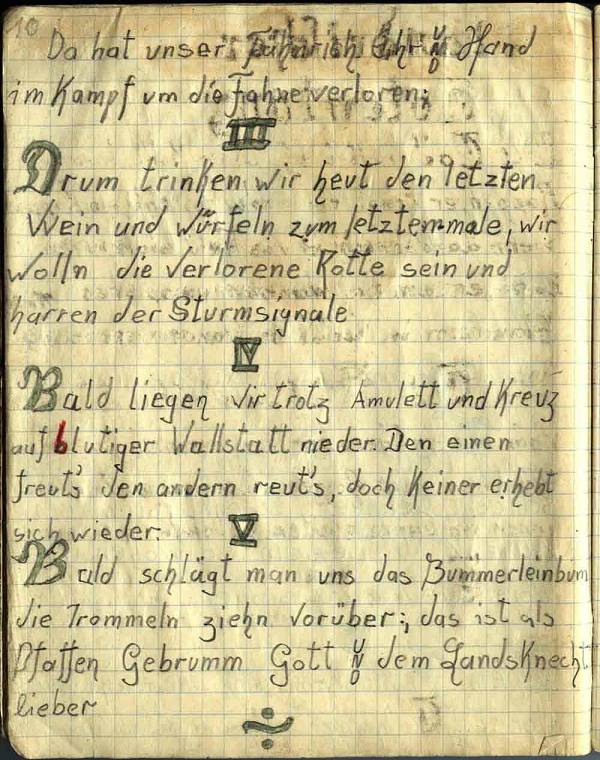 10
Da hat unser Fähnrich Ehr UND Hand
im Kampf um die Fahne verloren:,
III
Drum trinken wir heut den letzten
Wein und Würfeln zum letztenmale, wir
wolln die verlorene Rotte sein und
harren der Sturmsignale
IV
Bald liegen wir trotz Amulett und Kreuz
auf blutiger Wallstatt nieder. Den einen
freut's den andern reut's, doch keiner erhebt
sich wieder.
V
Bald schlägt man uns das Bummerleinbum
die Trommeln ziehn vorüber:, das ist als
Pfaffen Gebrumm Gott UND dem Landsknecht
lieber